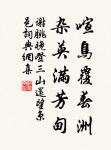 喧鳥覆春洲
杂英滿芳甸
謝朓晚登三山還望京
邑詞典網集